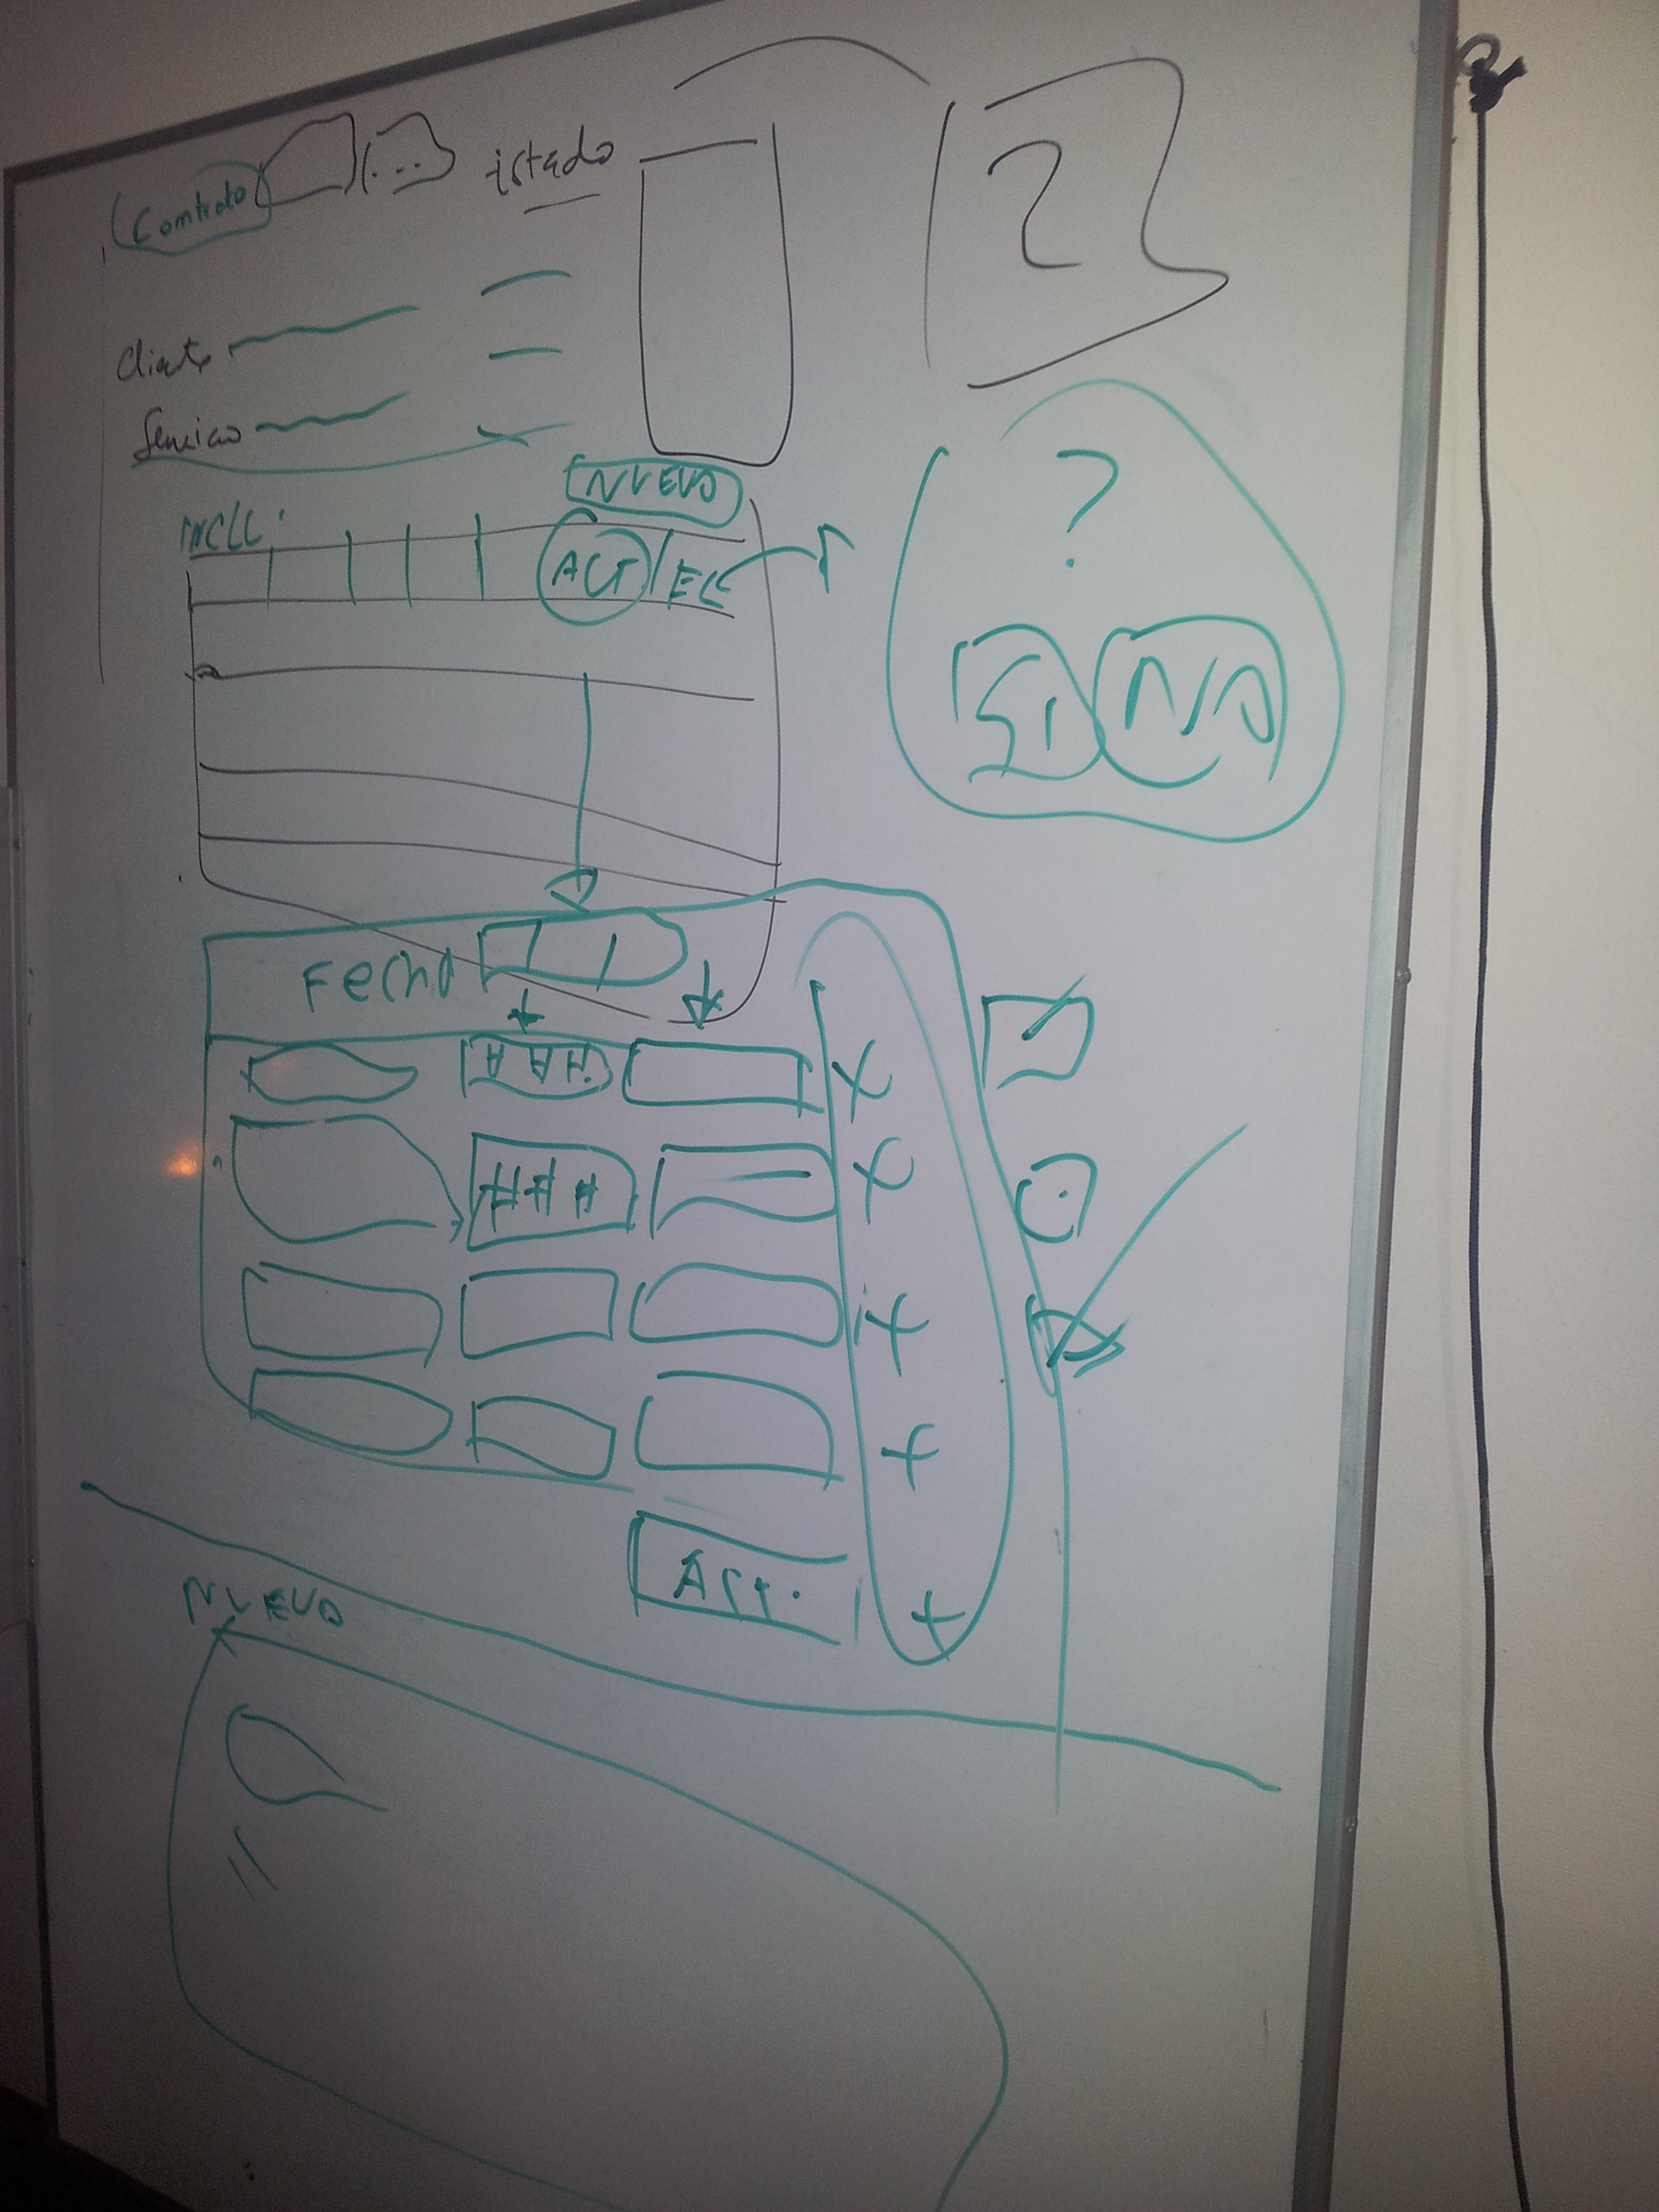 Contrato ... istado
2
Cliente
Servicio
NUEVO
INCLL.
ACT EL
?
SI NO
Fecha / /
###.
X
###
X
X
X
Act.
X
NUEVO